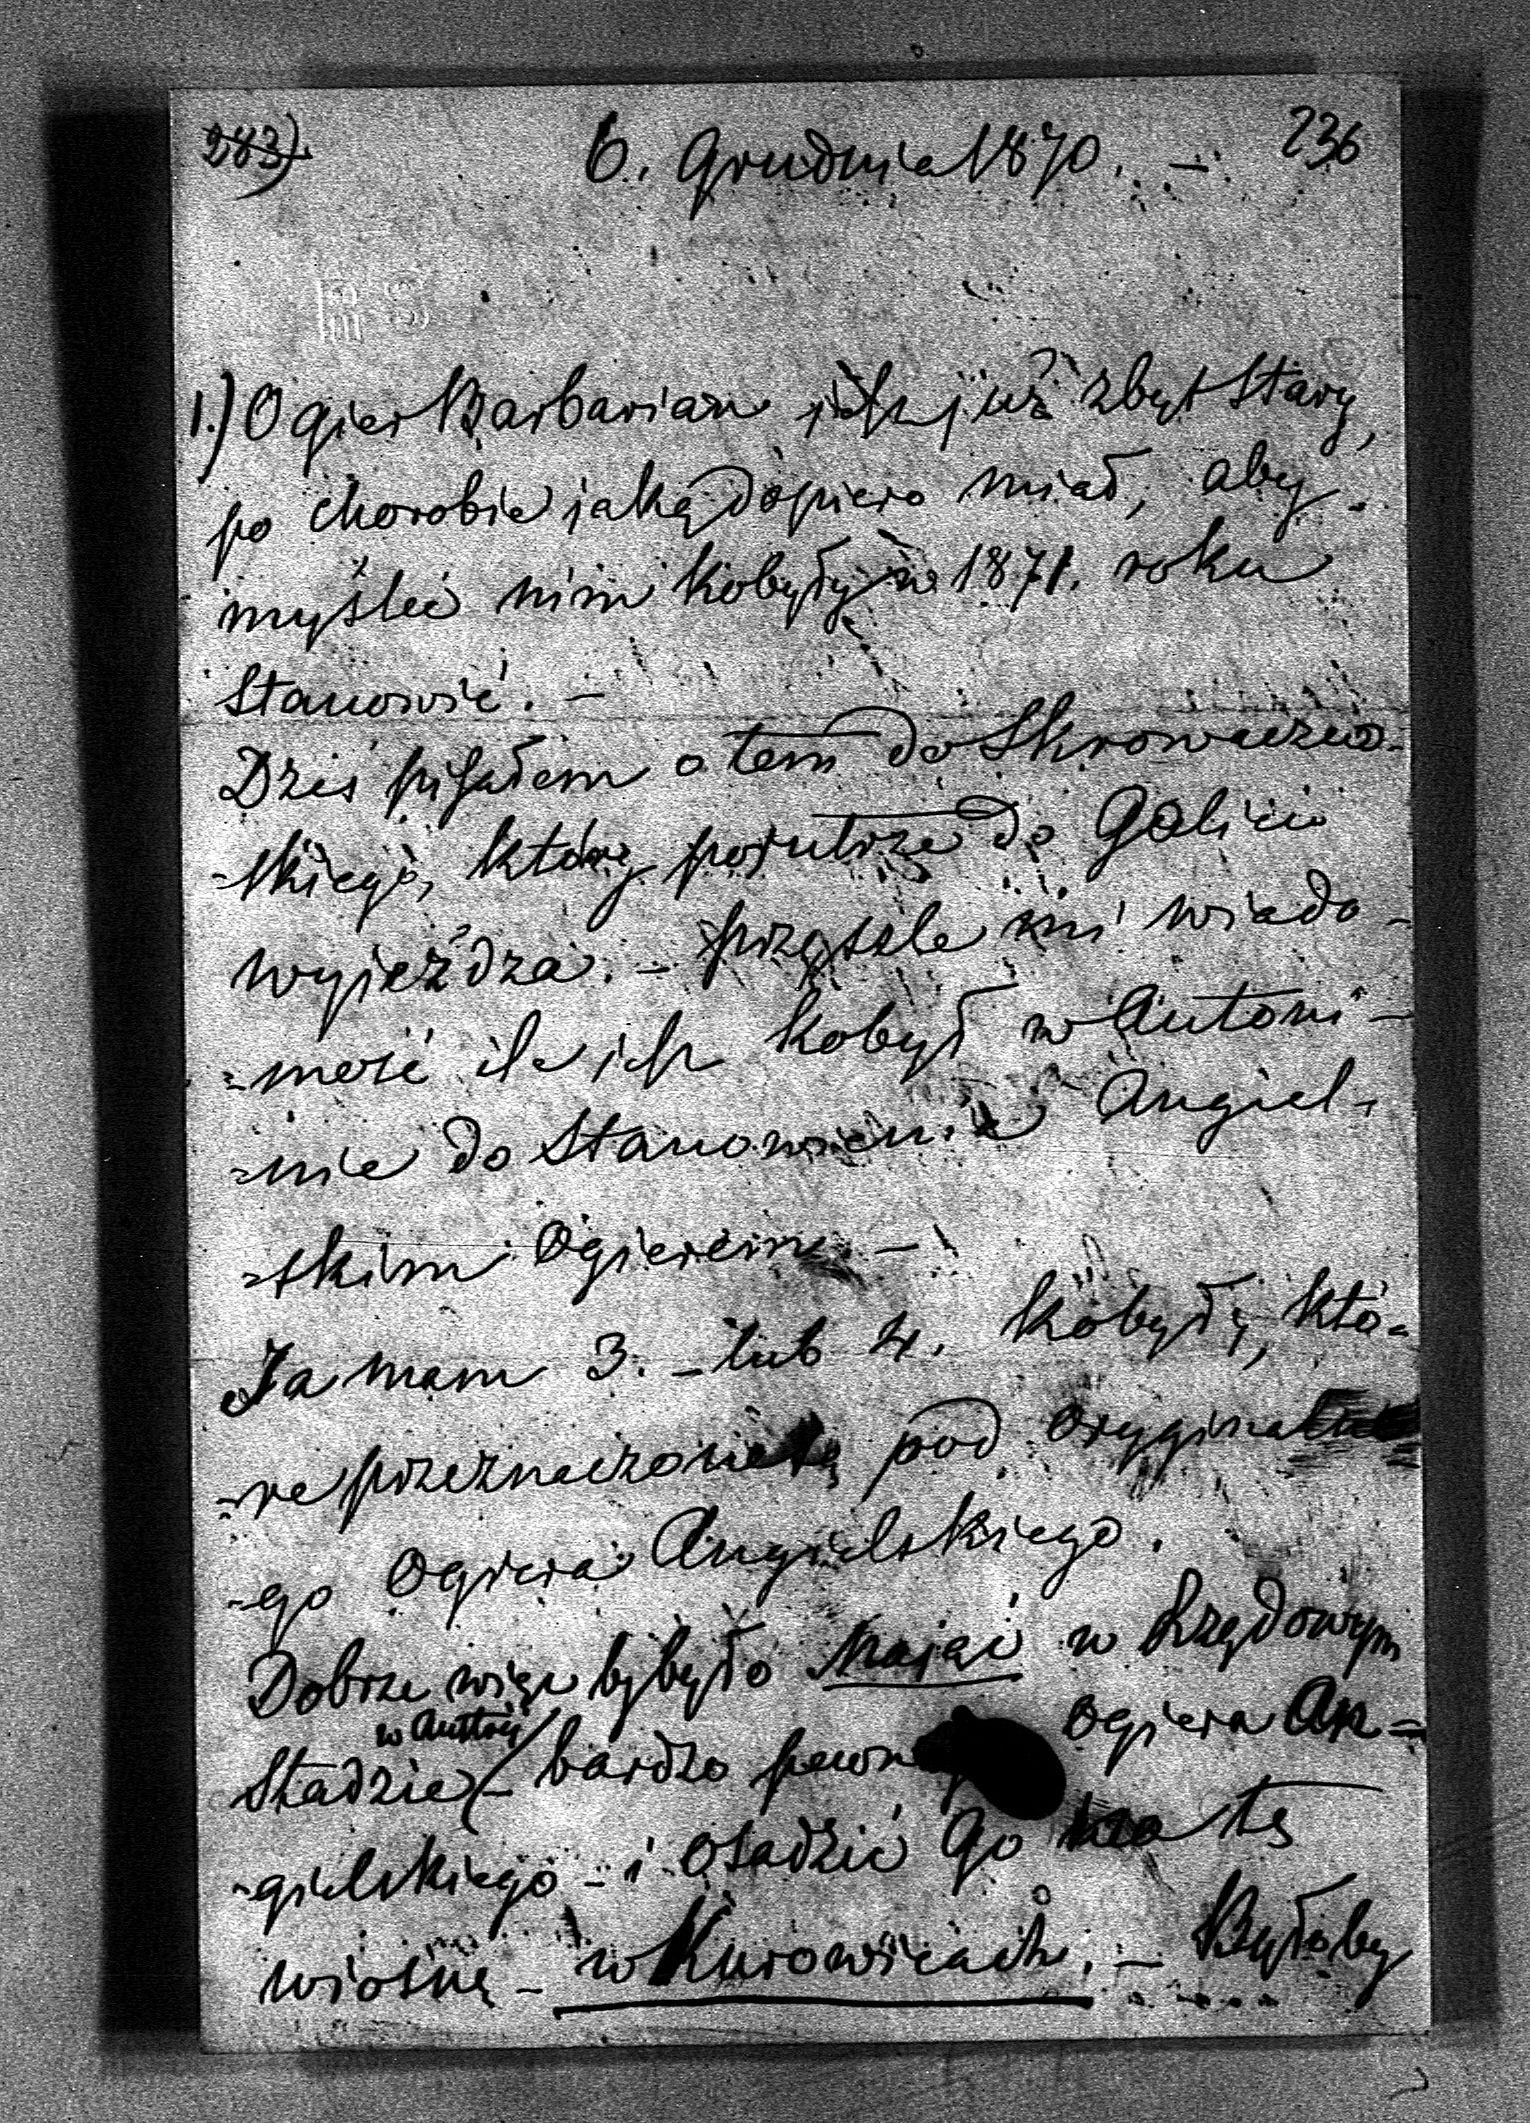 283)
6. Grudnia 1870. —
236
1.) Ogier Barbarian jest już zbyt stary,
po chorobie jaką dopiero miał, aby
myśleć nim kobyły w 1871. roku
stanowić. —
Dziś pisałem o tem do Skrowaczew-
-skiego, który pojutrze do Galicii
wyjeżdza. — przyszle mi wiado-
-mość ile jest kobył w Antoni-
-nie do stanowienia Angiel-
-skim Ogierem. —
Ja mam 3. — lub 4. kobyły, któ-
-re przeznaczone są pod oryginalne-
-go Ogiera Angielskiego.
Dobrze więc by było Nająć w Rządowym
w Austrij
Stadzie — bardzo Ogiera An-
-gielskiego — i osadzić Go na tę
wiosnę — w Kurowicach. — Byłoby